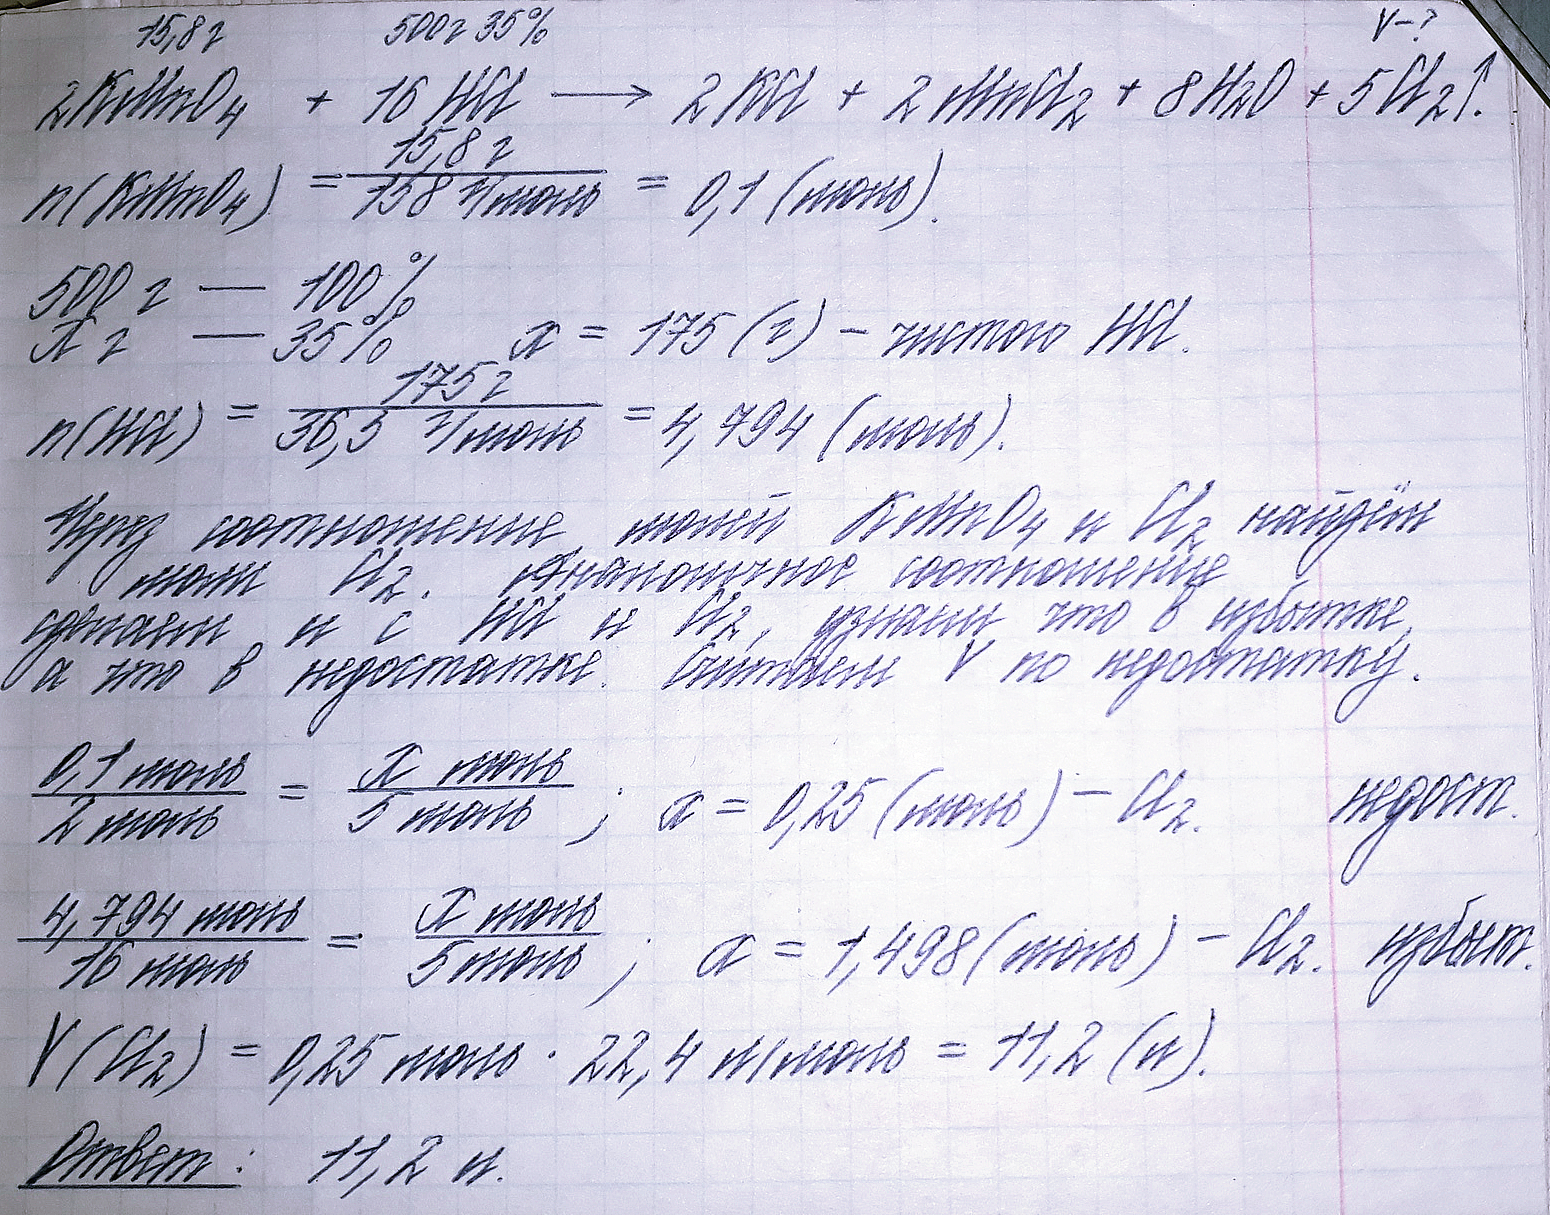 15,8 г 500 г 35% V-?
2KMnO4 + 16 HCl ⟶ 2 KCl + 2 MnCl2 + 8H2O + 5Cl2↑.
n(KMnO4) = 15,8 г / 158 г/моль = 0,1 (моль).
500 г — 100%
x г — 35% x = 175 (г) – чистого HCl.
n(HCl) = 175 г / 36,5 г/моль = 4,794 (моль).
Через соотношение молей KMnO4 и Cl2 найдём
моли Cl2. Аналогичное соотношение
сделаем и с HCl и Cl2, узнаем что в избытке,
а что в недостатке. Считаем V по недостатку.
0,1 моль / 2 моль = x моль / 5 моль ; x = 0,25 (моль) – Cl2. недост.
4,794 моль / 16 моль = x моль / 5 моль ; x = 1,498 (моль) – Cl2. избыт.
V(Cl2) = 0,25 моль · 22,4 л/моль = 11,2 (л).
Ответ: 11,2 л.